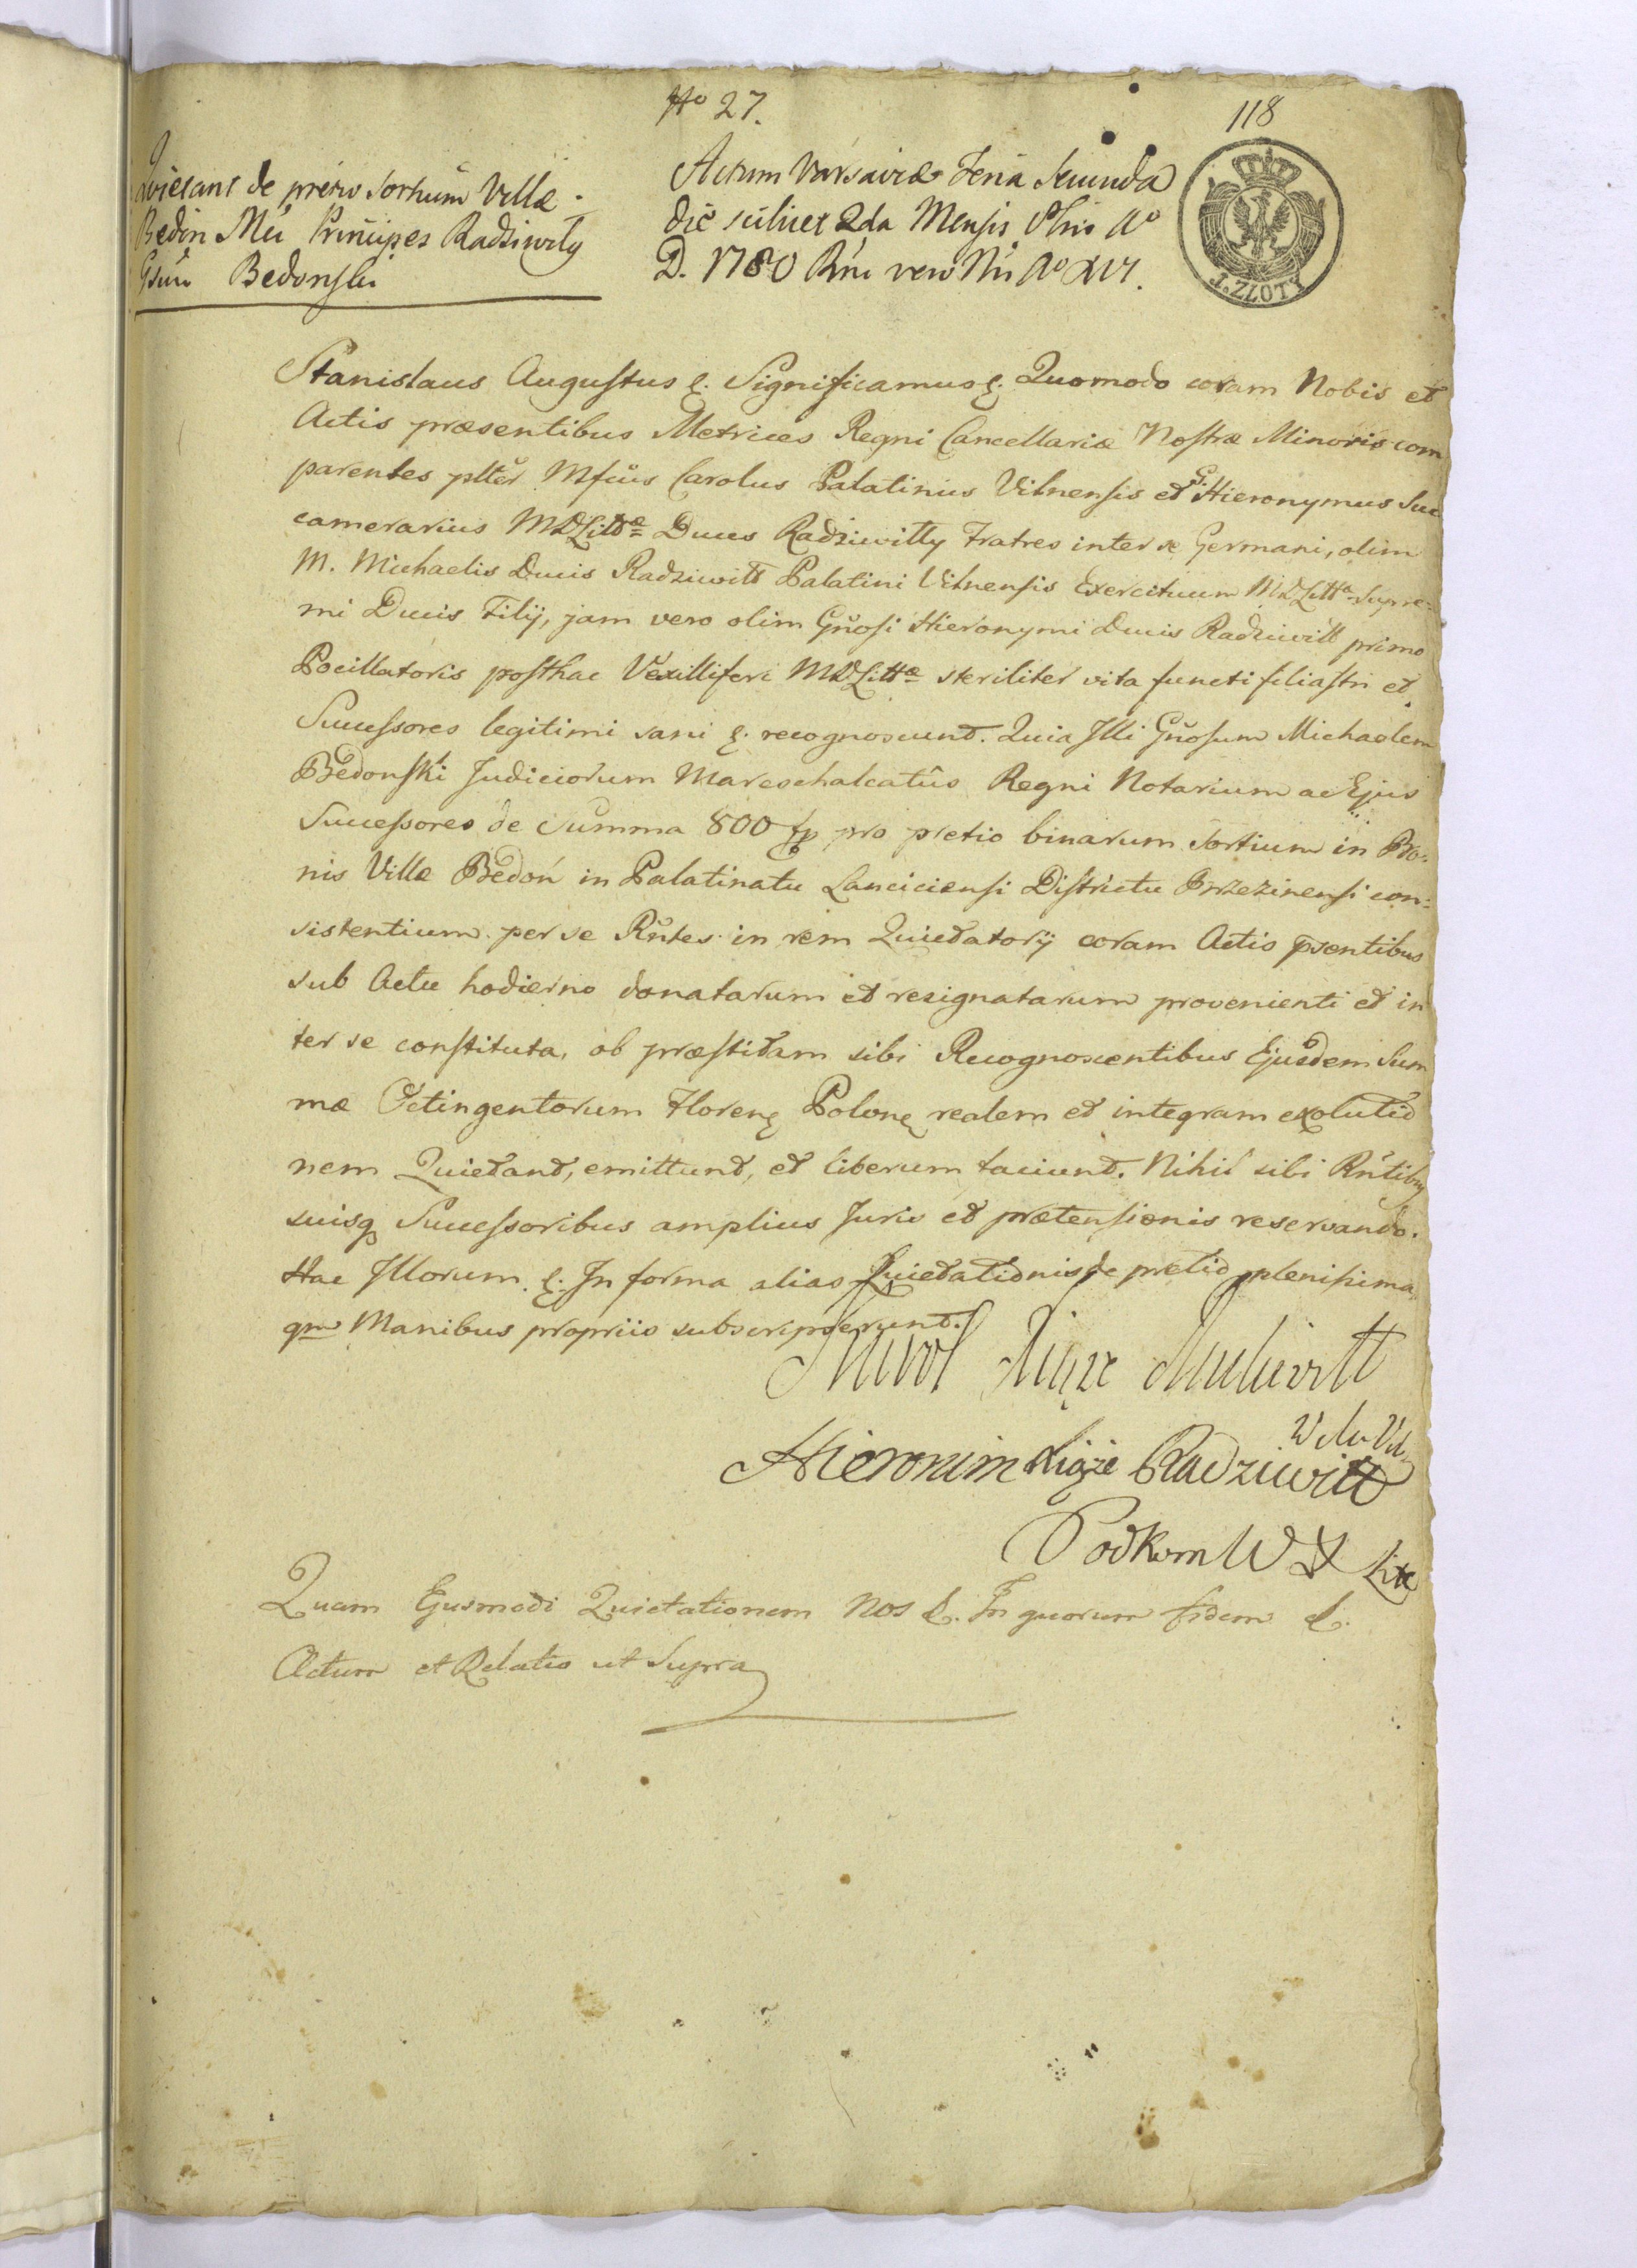 No 27.
118
Quietant de pretio sortium Villæ
Bedon Mci Principes Radziwiły
Gsum Bedonski
Actum Varsaviæ Feria Secunda
die scilicet 2da Mensis 8bris Ao
D. 1780 Rni vero Nri Ao XVI.
1. ZŁOTY
Stanislaus Augustus &. Significamus &. Quomodo coram Nobis et
Actis præsentibus Metrices Regni Cancellariæ Nostræ Minoris com
parentes plter Mfcus Carolus Palatinus Vilnensis et G. Hieronymus Suc
camerarius MDLittæ Duces Radziwiłły Fratres inter se Germani, olim
M. Michaelis Ducis Radziwiłł Palatini Vilnensis Exercituum MDLittæ Supre=
mi Ducis Filij, jam vero olim Gnosi Hieronymi Ducis Radziwiłł primo
Pocillatoris posthac Vexilliferi MDLittæ steriliter vita functi filiastri et
Successores legitimi sani &. recognoscunt. Quia Illi Gnosum Michaelem
Bedonski Judiciorum Mareschalcatûs Regni Notarium ac Ejus
Successores de Summa 800 fp pro pretio binarum Sortium in Bo=
nis Villæ Bedoń in Palatinatu Lanciciensi Districtu Brzezinensi con=
sistentium per se Rntes in rem Quietatorij coram Actis psentibus
sub Actu hodierno donatarum et resignatarum provenienti et in
ter se constituta, ob præstitam sibi Recognoscentibus Ejusdem Sum
mæ Octingentorum Floren Polon realem et integram exolutio
nem Quietant, emittunt, et liberum faciunt. Nihil sibi Rntibus
suisq Successoribus amplius Juris et prætensionis reservando.
Hac Illorum &. In forma alias Quietationis de pretio plenissima
qm Manibus propriis subscripserunt.
Karol Xiąże Radziwiłł
W Wdа Wil
Hieronim Xiąże Radziwiłł
Podkom W X Litt
Quam Ejusmodi Quietationem Nos &. In quorum fidem &.
Actum et Relatio ut Supra